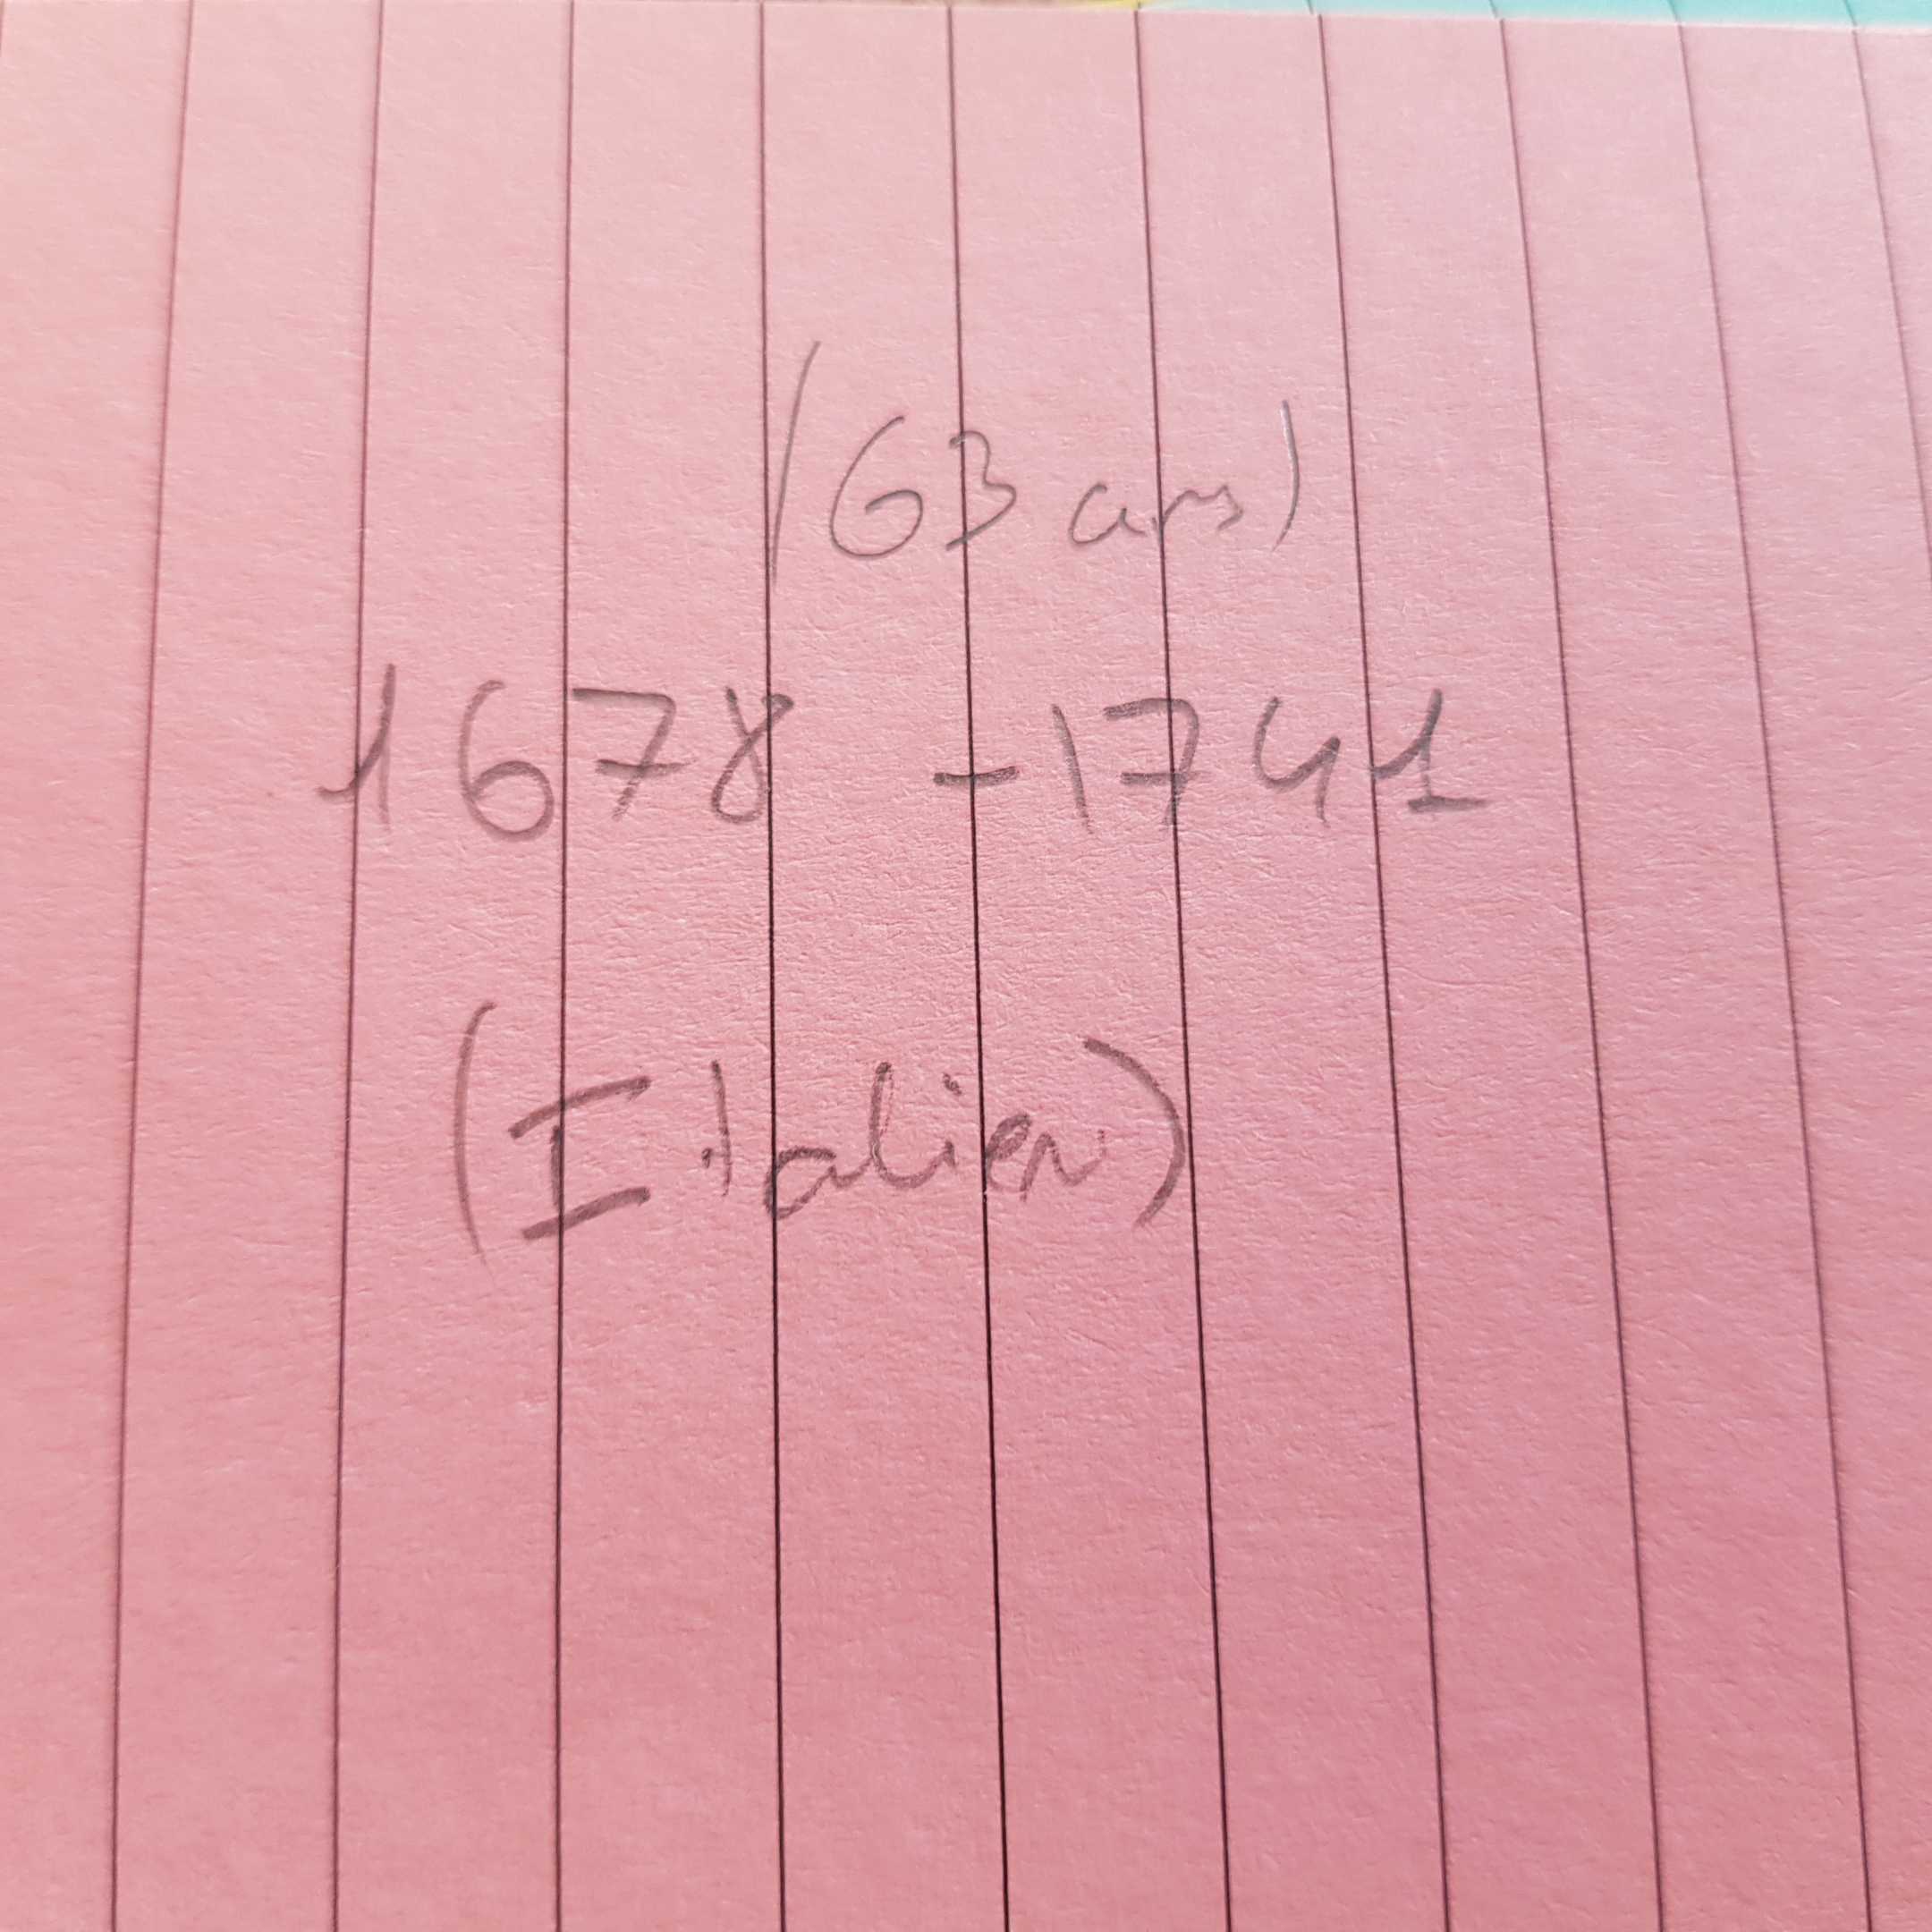 (63 ans)
1678 - 1741
(Italien)